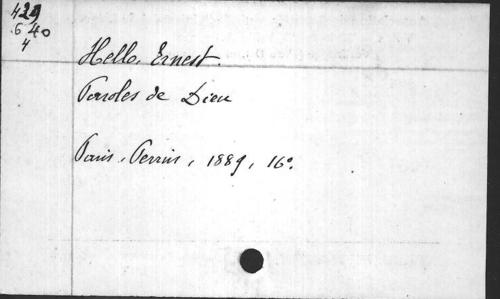 429
640
4
Hello, Ernest.
Paroles de Dieu
Paris, Perrin, 1889, 16°.